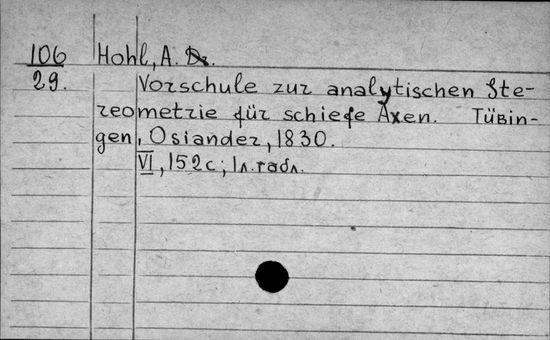 106 Hohl, A. Dr.
29. Vorschule zur analytischen Ste-
reometrie für schiefe Axen. Tübin-
gen, Osiander, 1830.
VI, 152 с; 1 л. табл.